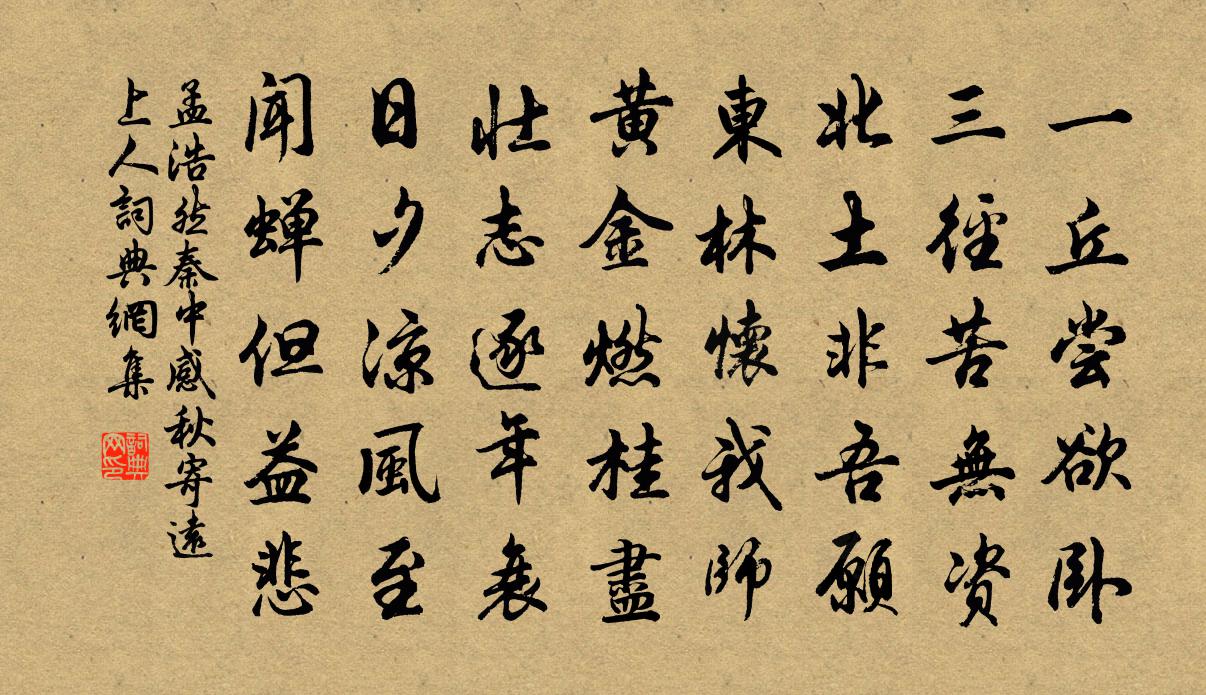 一丘尝欲卧
三径苦無资
北土非吾願
東林懷我師
黄金燃桂盡
壮志逐年衰
日夕凉風至
闻蝉但益悲
孟浩然秦中感秋寄遠
上人詞典網集
詞典
网印